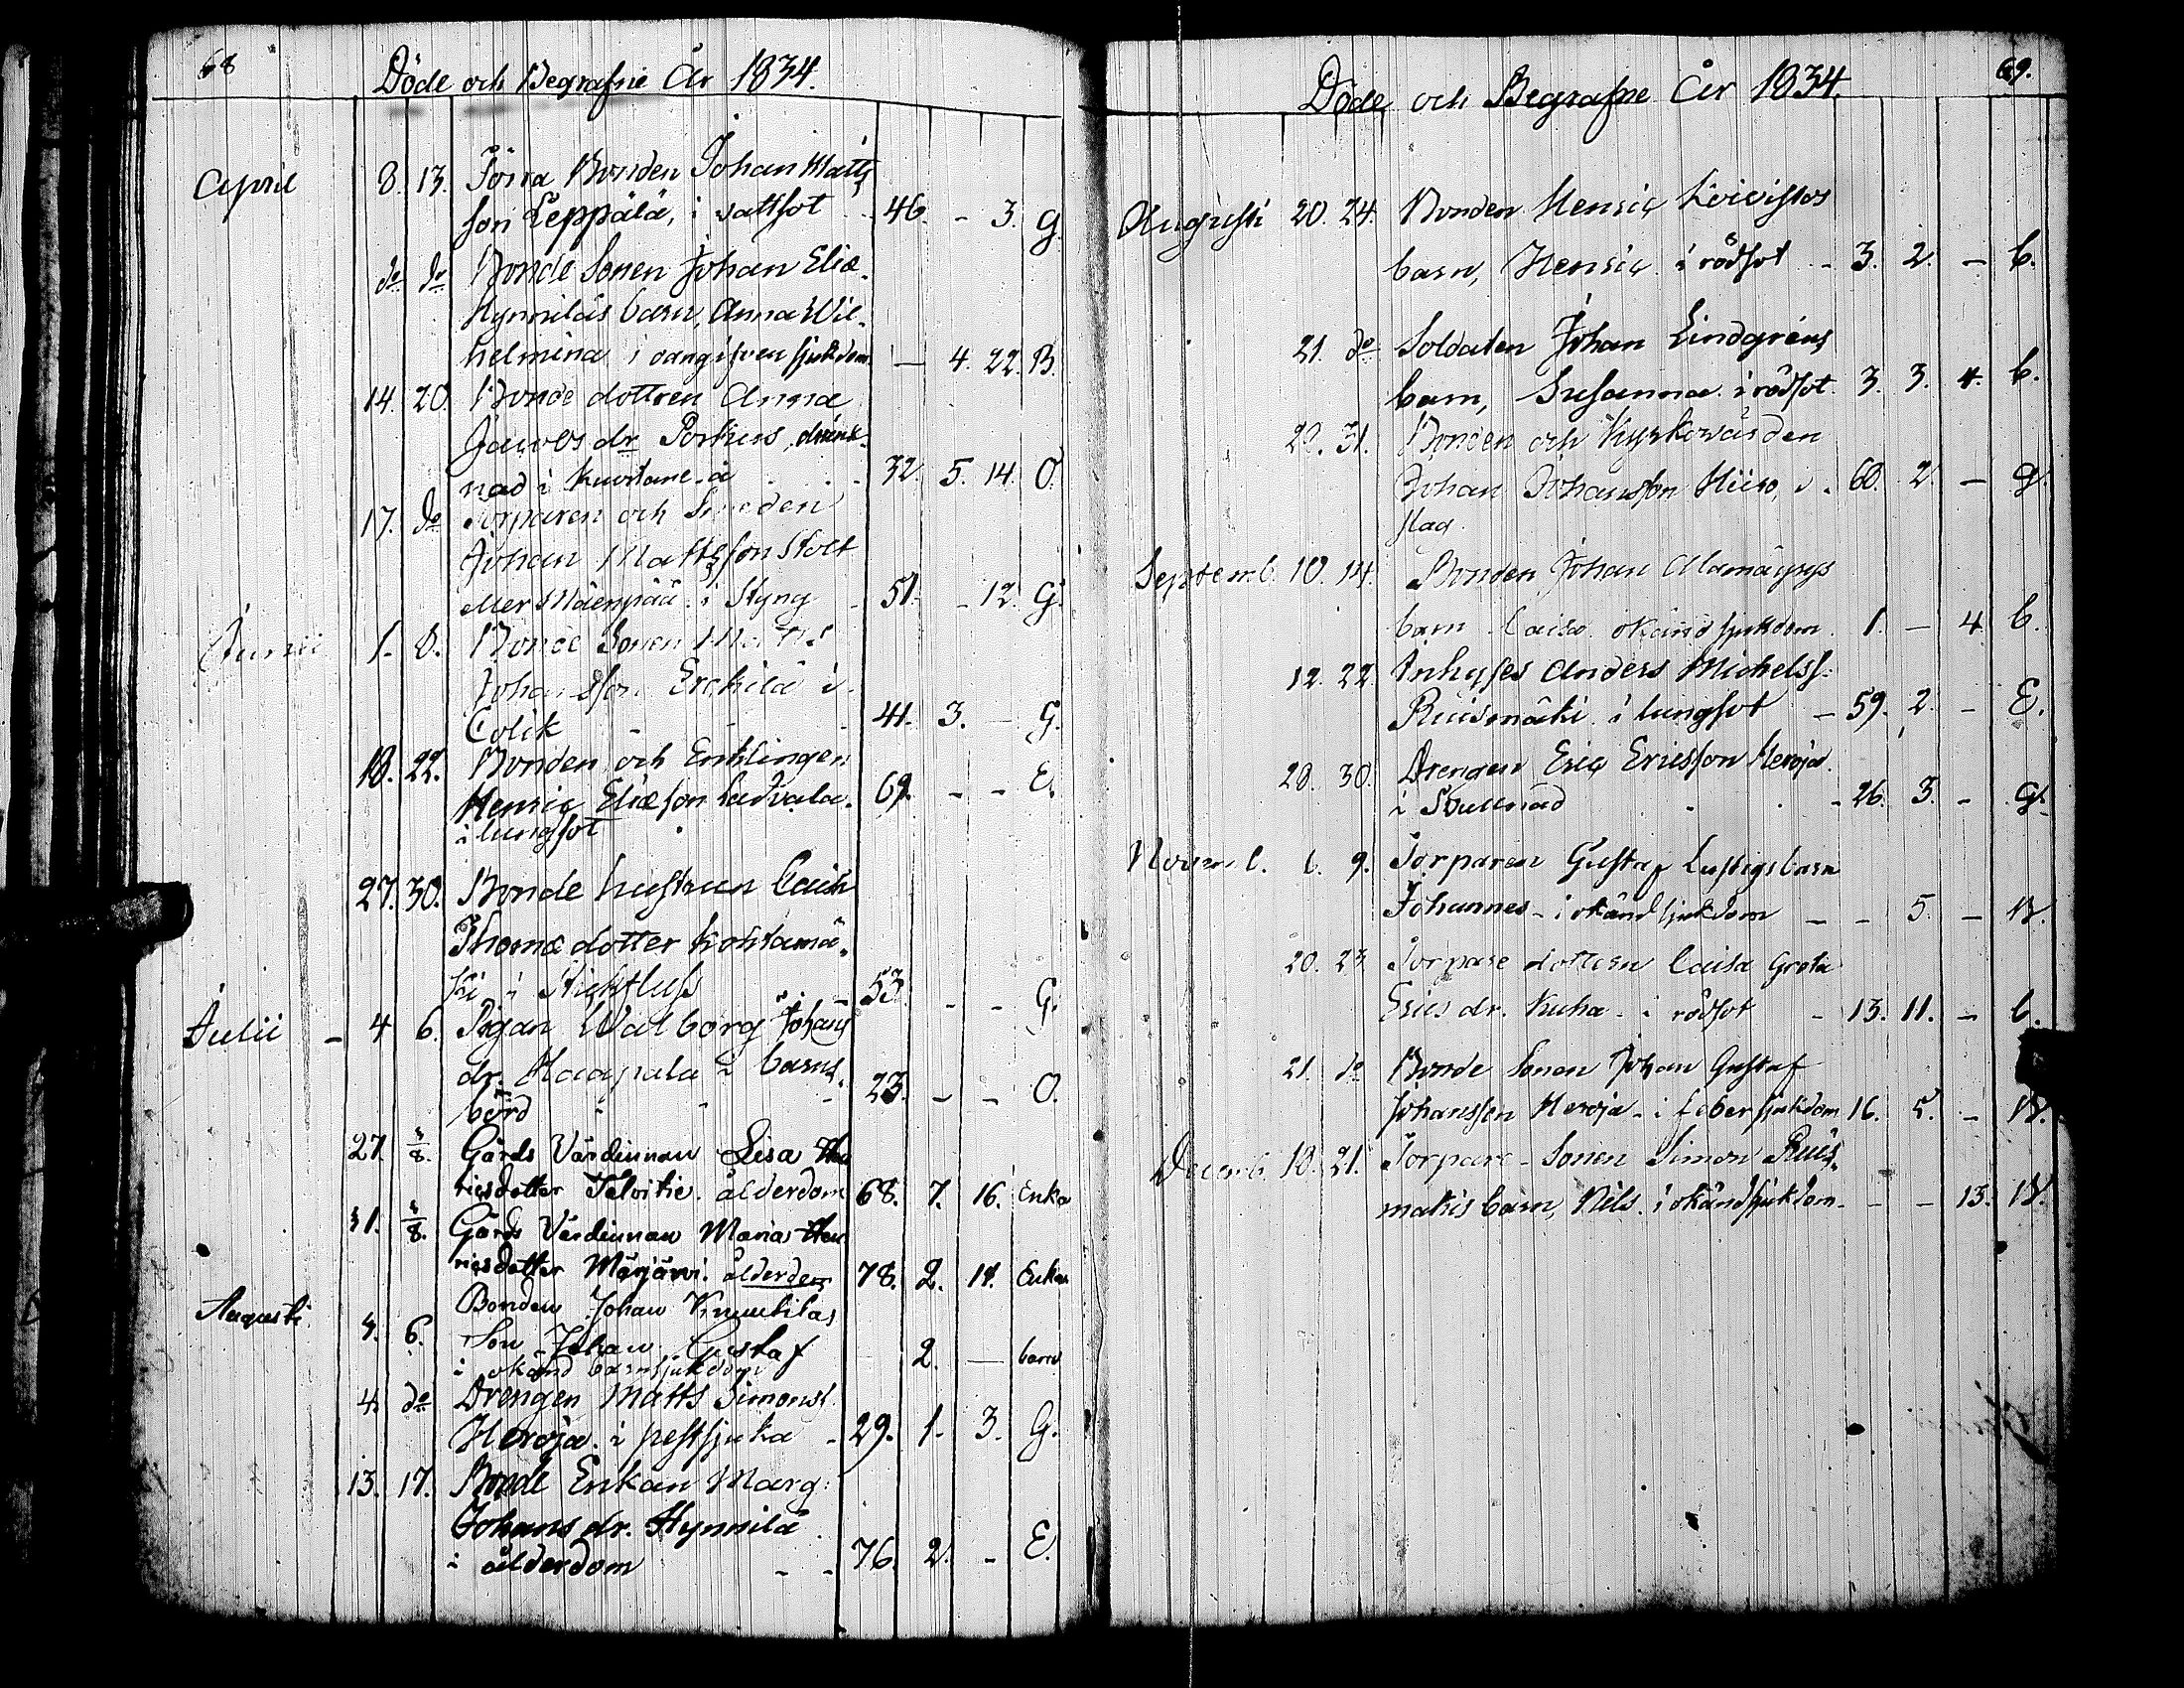 68
Döde och Begrafne År 1834.
April 8. 13. Förra Bonden Johan Matts
son Leppälä, i vattsot 46. - 3. G.
do do Bonde Sonen Johan Eliæ
Hynniläs barn, Anna Wil
helmina i oangifven sjukdom — 4. 22. B.
14. 20. Bonde dottren Anna
Jacobs dr Porkus, drunk
nad i Kuortane å 32. 5. 14. O.
17. do Torparen och Smeden
Johan Mattsson Stolt
eller Mäenpää i Styng 51. - 12. G.
Junii 1. 8. Bonde Sonen Matts
Johansson Erckilä i
Colik 41. 3. - G.
18. 22. Bonden och Enklingen
Henric Eliæson Ladvala 69. - - E.
i lungsot
27. 30. Bonde hustrun Caisa
Thomæ dotter Kohtamä
ki i Stickfluss 53. - - G.
Julii - 4 6. Pigan Walborg Johans
dr. Haapala i barns
börd 23. - - O.
27. 3/8. Gårds Värdinnan Lisa Hen
ricsdotter Talvitie. ålderdom 68. 7. 16. Enka
31. 3/8. Gårds Värdinnan Maria Hen
ricsdotter Märjärvi. ålderdom 78. 2. 14. Enka
Bonden Johan
Augusti 3. 6. Son Johan Gustaf 2. — barn
i okänd barnsjukdom
4. do Drengen Matts Simonss.
Heroja i pestsjuka - 29. 1. 3. G.
13. 17. Bonde Enkan Marg:
Johans dr. Hynnilä
i ålderdom - - 76. 2. - E.
69.
Döde och Begrafne År 1834.
Augusti 20. 24. Bonden Henric Koivistos
barn, Henric i rödsot - 3. 2. - b.
21. do Soldaten Johan Lindgréns
barn, Susanna i rödsot. 3. 3. 4. b.
29. 31. Bonden och Kyrkovärden
Johan Johansson Hiiro, i 60. 2. - G.
slag.
Septemb. 10. 14. Bonden Johan Alamäkys
barn Caisa okänd sjukdom. 1. - 4. b.
12. 22. Inhyses Anders Michelss.
Ruismäki i lungsot - 59. 2. - E.
28. 30. Drengen Eric Ericsson Heroja
i Svullnad - 26. 3. - G.
Novemb. 6. 9. Torparen Gustaf Lustigs barn
Johannes - i okänd sjukdom - - 5. - B.
20. 23 Torpare dottren Caisa Greta
Erics dr. Kuha - i rödsot - 13. 11. - b.
21. do Bonde Sonen Johan Gustaf
Johansson Heroja - i febersjukdom 16. 5. - B.
Decemb. 18. 21. Torpare - Sonen Simon Ruis
mäkis barn, Nils. i okänd sjukdom - - - 13. B.